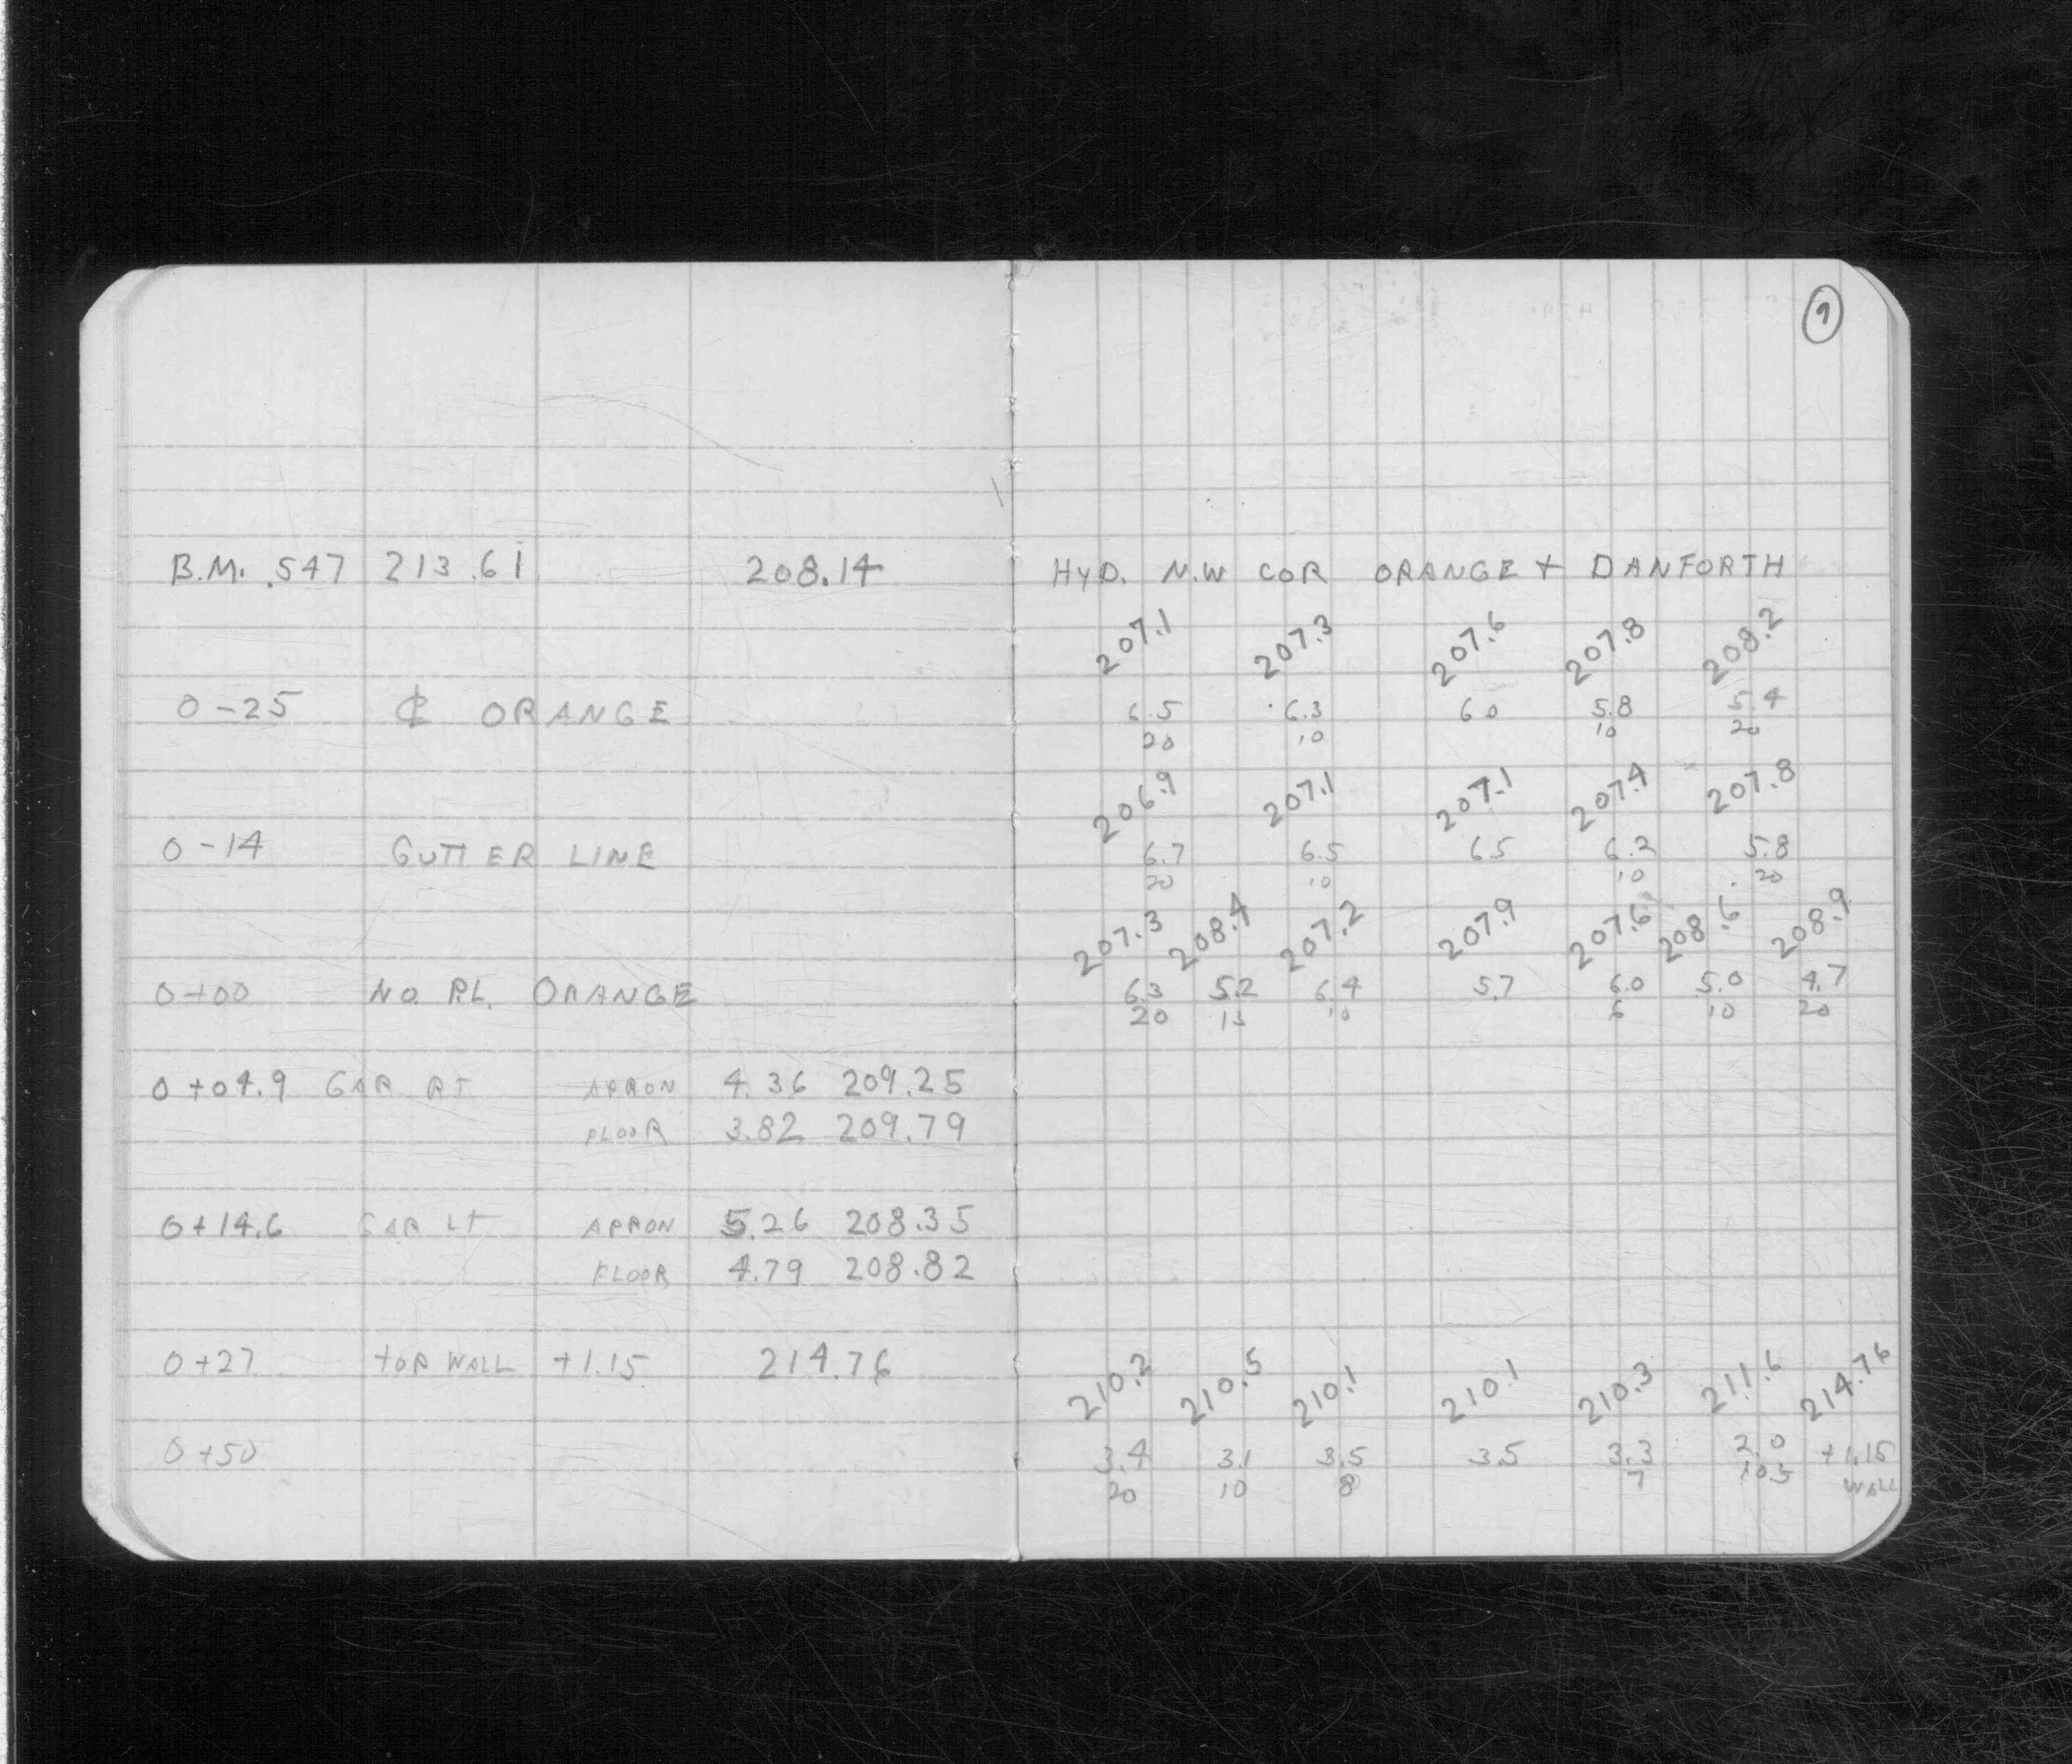 9
B.M. .547 213.61 208.14 HYD. N.W COR ORANGE + DANFORTH
207.1 207.3 207.6 207.8 208.2
0-25 ℄ ORANGE 6.5 6.3 6.0 5.8 5.4
20 10 10 20
206.9 207.1 207.1 207.4 207.8
0-14 GUTTER LINE 6.7 6.5 6.5 6.2 5.8
20 10 10 20
207.3 208.4 207.2 207.9 207.6 208.6 208.9
0+00 NO. P.L. ORANGE 6.3 5.2 6.4 5.7 6.0 5.0 4.7
20 13 10 6 10 20
0+04.9 GAR RT APRON 4.36 209.25
FLOOR 3.82 209.79
0+14.6 GAR LT APRON 5.26 208.35
FLOOR 4.79 208.82
0+27 TOP WALL +1.15 214.76
210.2 210.5 210.1 210.1 210.3 211.6 214.76
0+50 3.4 3.1 3.5 3.5 3.3 2.0 +1.15
20 10 8 7 10.5 WALL